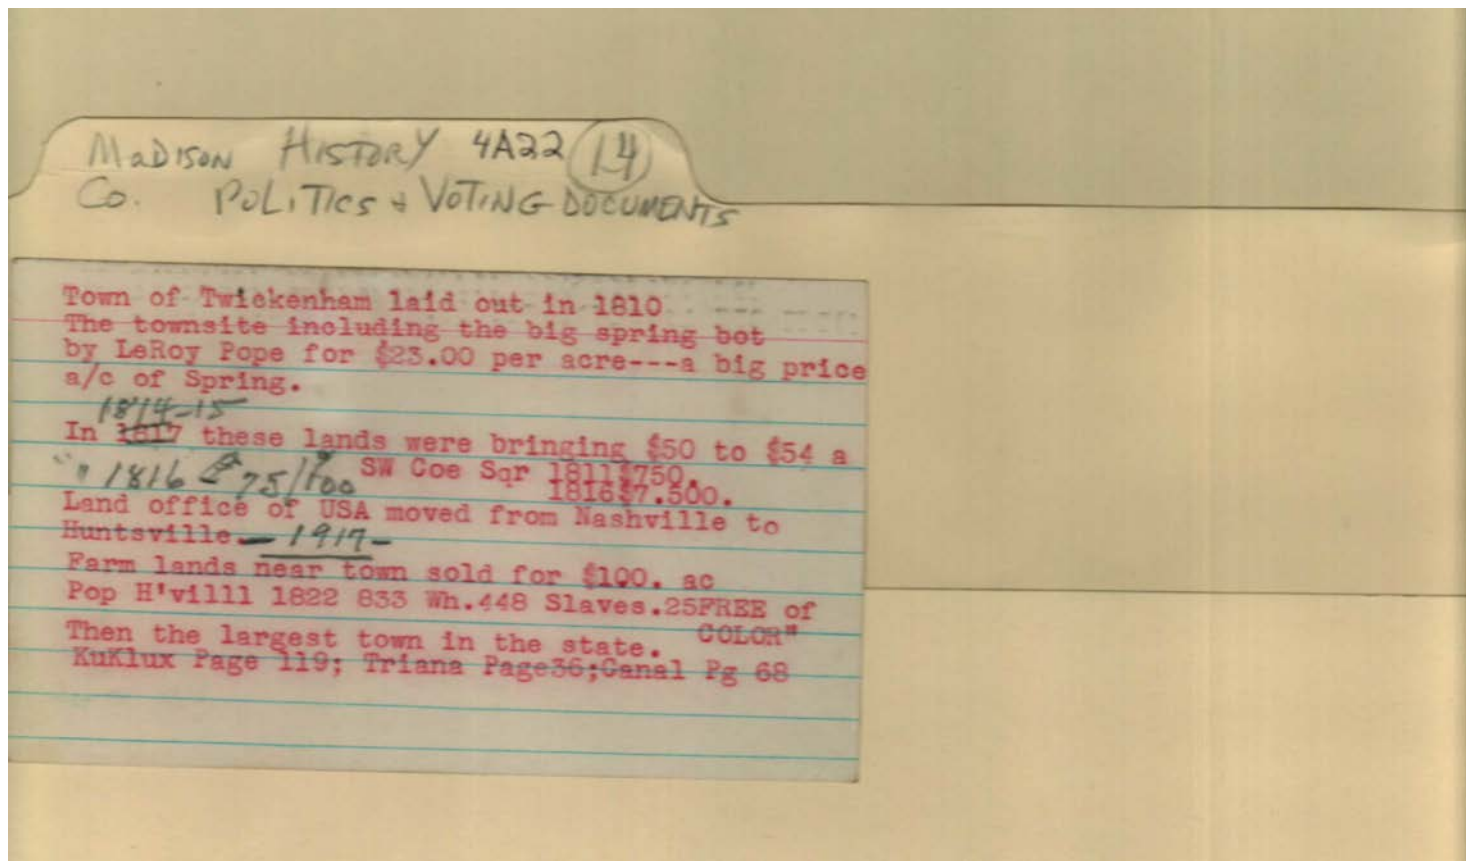 MaDISON HISTORY 4A22 14
Co. POLITICS & VOTING DOCUMENTS
Town of Twickenham laid out in 1810
The townsite including the big spring bot
by LeRoy Pope for $23.00 per acre---a big price
a/c of Spring.
1814-15
In 1817 these lands were bringing $50 to $54 a
" " 1816 $75/100 SW Coe Sqr 1811$750.
1816$7.500.
Land office of USA moved from Nashville to
Huntsville. - 1917 -
Farm lands near town sold for $100. ac
Pop H'villl 1822 833 Wh.448 Slaves.25FREE of
COLOR"
Then the largest town in the state.
KuKlux Page 119; Triana Page36;Canal Pg 68